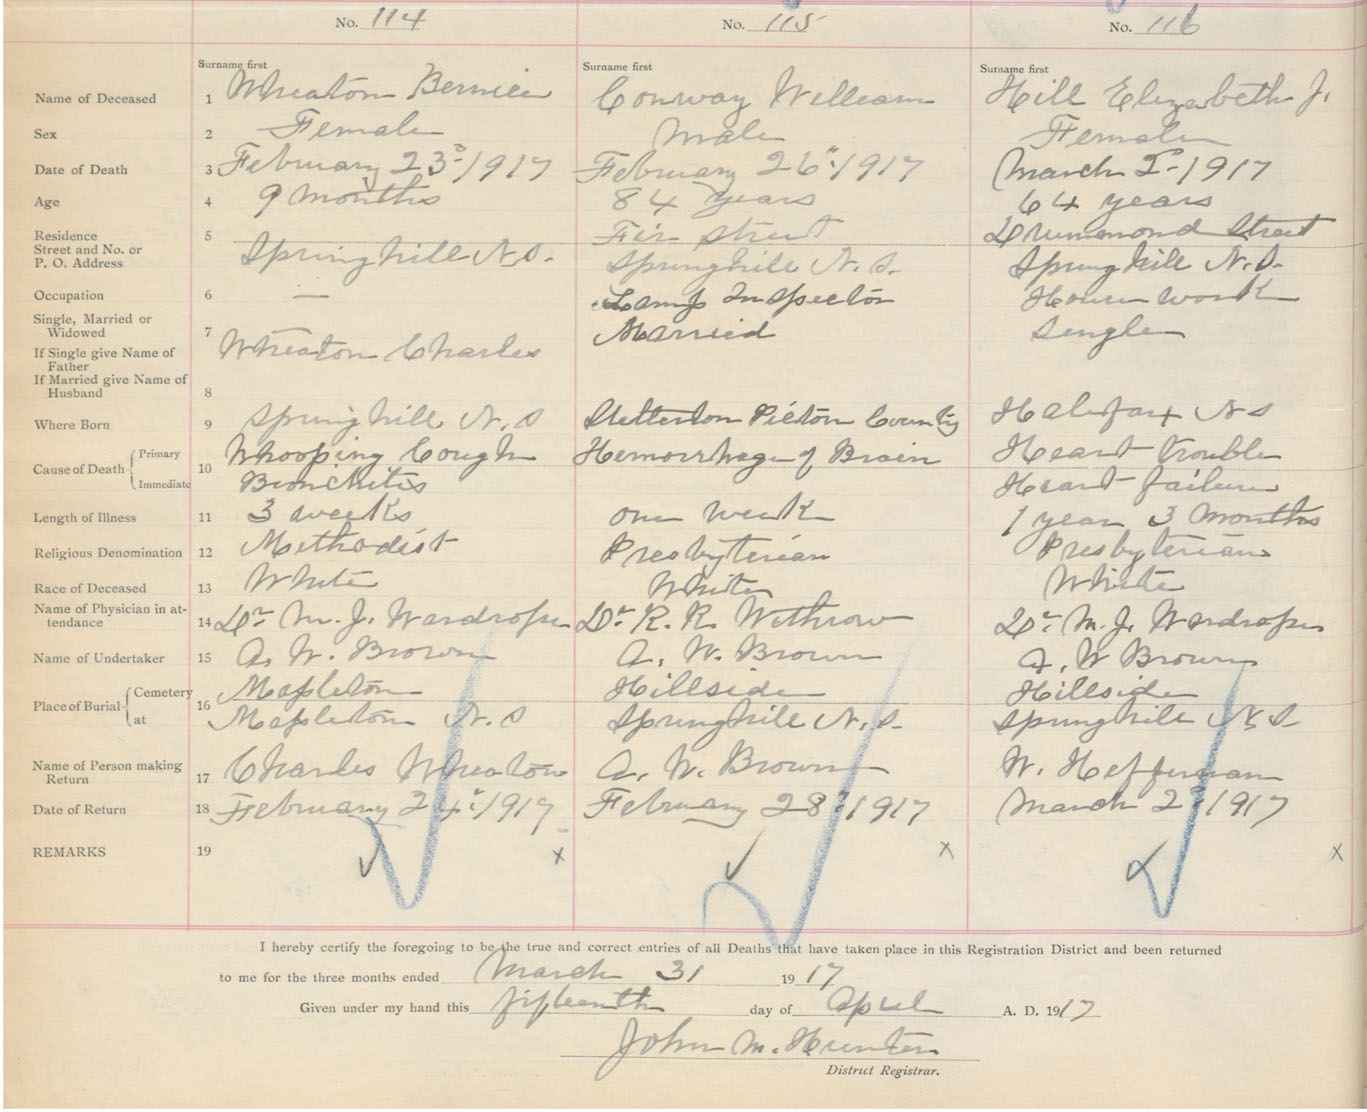 No. 114 No. 115 No. 116
Surname first Surname first Surname first
Name of Deceased 1 Wheaton Bernice Conway William Hill Elizabeth J.
Sex 2 Female Male Female
Date of Death 3 February 23d 1917 February 26" 1917 March 2d 1917
Age 4 9 months 84 years 64 years
Residence 5 Fir Street Drummond Street
Street and No. or
P. O. Address Springhill N.S. Springhill N.S. Springhill N.S.
Occupation 6 — Lamp Inspector House work
Single, Married or
Widowed 7 Married Single
If Single give Name of
Father Wheaton Charles
If Married give Name of
Husband 8
Where Born 9 Springhill N.S Stellerton Pictou County Halifax N S
Cause of Death Primary 10 Whooping Cough Hemorrhage of Brain Heart Trouble
Immediate Bronchitis Heart failure
Length of Illness 11 3 weeks one week 1 year 3 months
Religious Denomination 12 Methodist Presbyterian Presbyterian
Race of Deceased 13 White White White
Name of Physician in at-
tendance 14 Dr. M. J. Wardrope Dr. R. R. Withrow Dr. M. J. Wardrope
Name of Undertaker 15 A. W. Brown A. W. Brown A. W Brown
Place of Burial Cemetery 16 Mapleton Hillside Hillside
at Mapleton N.S Springhill N.S. Springhill N S
Name of Person making
Return 17 Charles Wheaton A. W. Brown W. Heffernan
Date of Return 18 February 24" 1917 February 28" 1917 March 2d 1917
REMARKS 19 ✓ x ✓ x ✓ x
I hereby certify the foregoing to be the true and correct entries of all Deaths that have taken place in this Registration District and been returned
to me for the three months ended March 31 1917
Given under my hand this fifteenth day of April A. D. 1917
John M. Hunter
District Registrar.